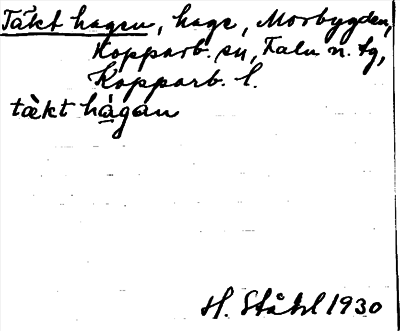 Täkt hagen, hage, Morbygden,
Kopparb. sn, Falu n. tg,
Kopparb. l.
tàkt hágan
H. Ståhl 1930